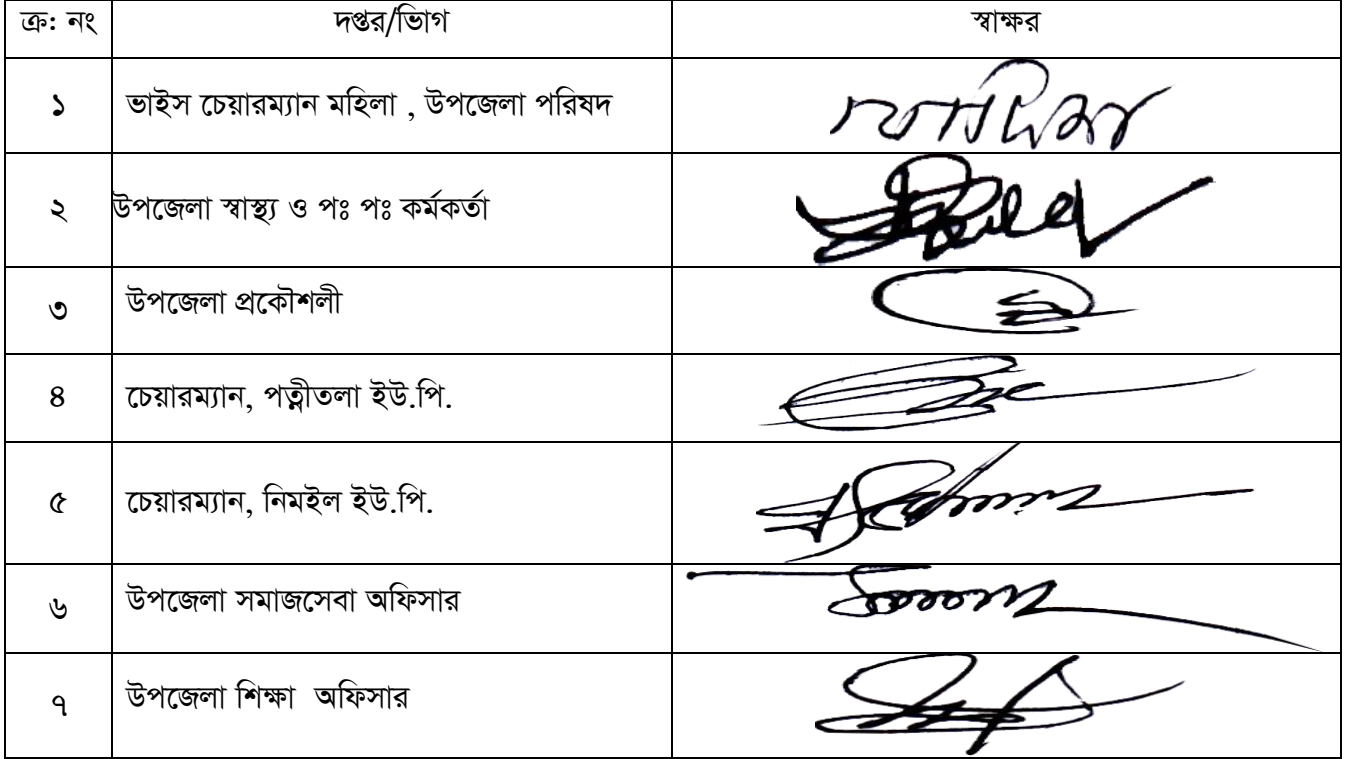 ক্র: নং দপ্তর/ভিাগ স্বাক্ষর
১ ভাইস চেয়ারম্যান মহিলা , উপজেলা পরিষদ
২ উপজেলা স্বাস্থ্য ও পঃ পঃ কর্মকর্তা
৩ উপজেলা প্রকৌশলী
৪ চেয়ারম্যান, পত্নীতলা ইউ.পি.
৫ চেয়ারম্যান, নিমইল ইউ.পি.
৬ উপজেলা সমাজসেবা অফিসার
৭ উপজেলা শিক্ষা অফিসার